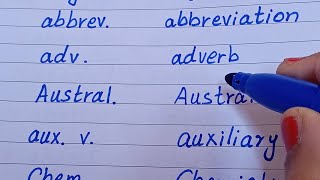 abbrev. abbreviation
adv. adverb
Austral.
aux. v. auxiliary
Chem